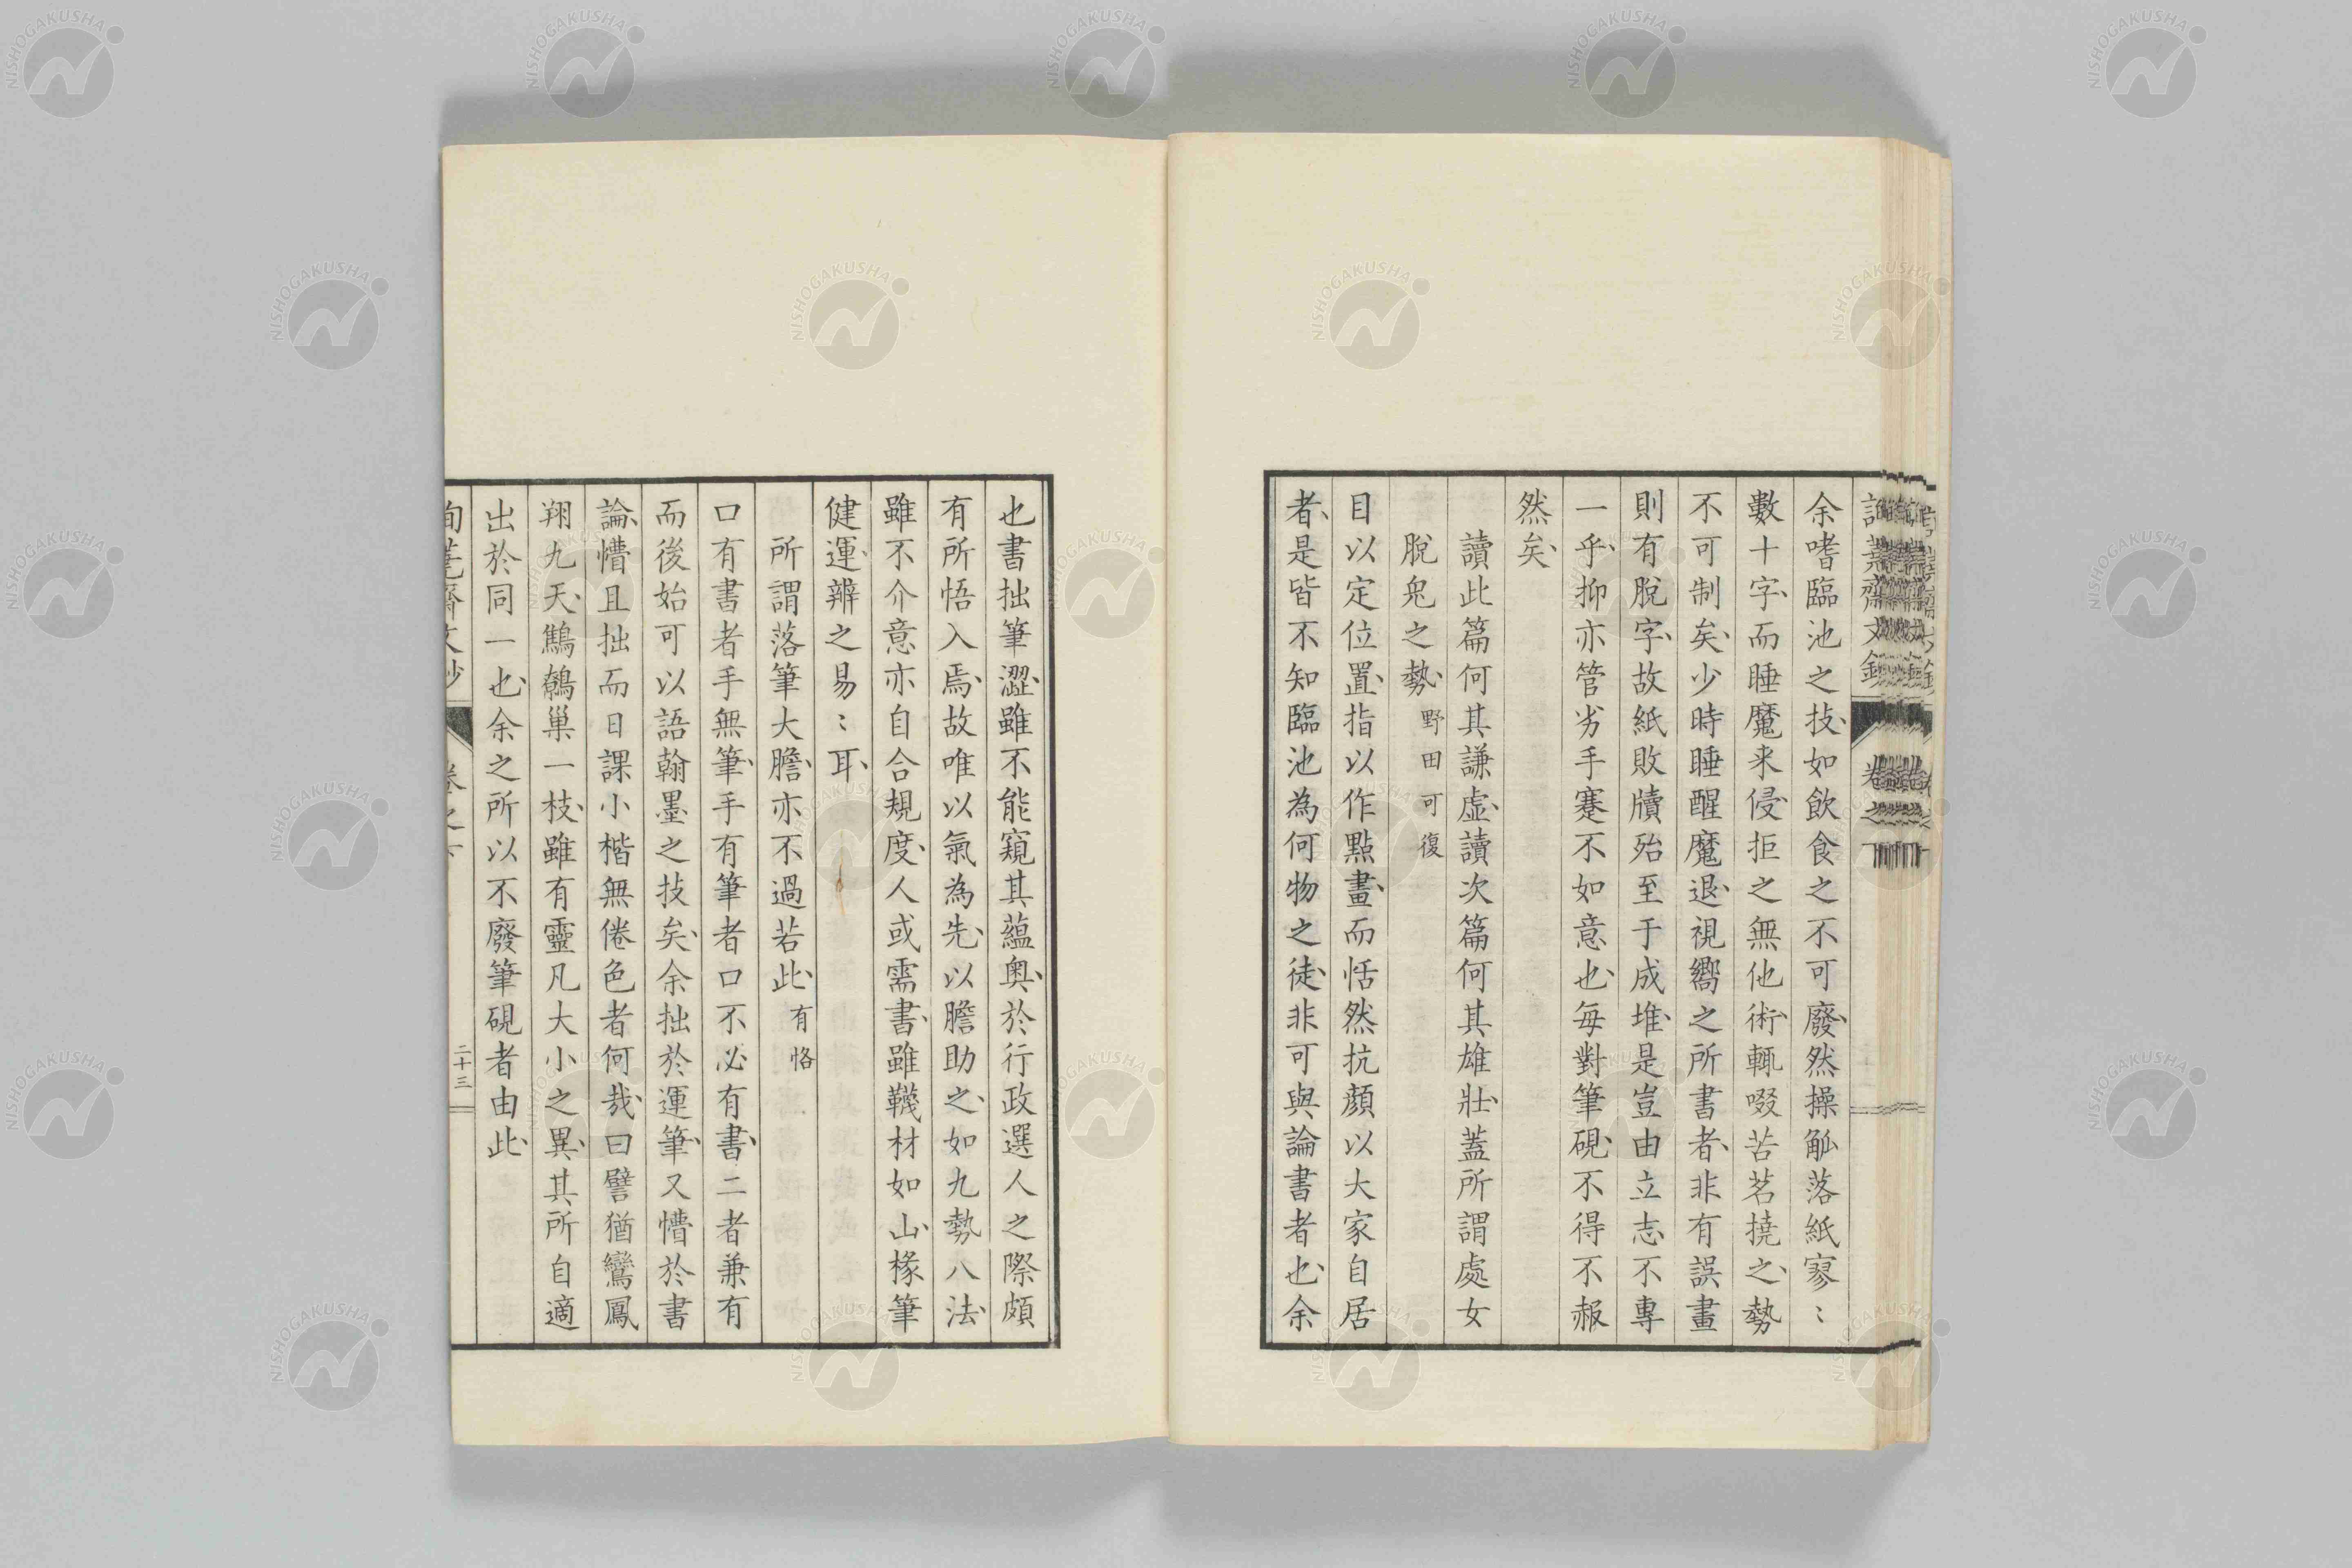 余嗜臨池之技、如飲食之不可廢、然操觚落紙寥〻
數十字、而睡魔来侵、拒之無他術、輒啜苦茗撓之、勢
不可制矣、少時睡醒魔退、視嚮之所書者、非有誤畫
則有脫字、故紙敗牘殆至于成堆、是豈由立志不專
一乎、抑亦管劣手蹇不如意也、每對筆硯、不得不赧
然矣、
讀此篇何其謙虛、讀次篇何其雄壯、蓋所謂處女
脫兔之勢、野田可復
目以定位置、指以作點畫、而恬然抗顏以大家自居
者、是皆不知臨池為何物之徒、非可與論書者也、余
也書拙筆澀、雖不能窺其蘊奧、於行政選人之際頗
有所悟入焉、故唯以氣為先、以膽助之、如九勢八法、
雖不介意亦自合規度、人或需書、雖韈材如山、椽筆
健運、辦之易〻耳、
所謂落筆大膽、亦不過若此、有恪
口有書者手無筆、手有筆者口不必有書、二者兼有
而後始可以語翰墨之技矣、余拙於運筆、又懵於書
論、懵且拙而日課小楷無倦色者何哉、曰譬猶鸞鳳
翔九天、鷦鷯巢一枝、雖有靈凡大小之異、其所自適
出於同一也、余之所以不廢筆硯者由此、
二十三